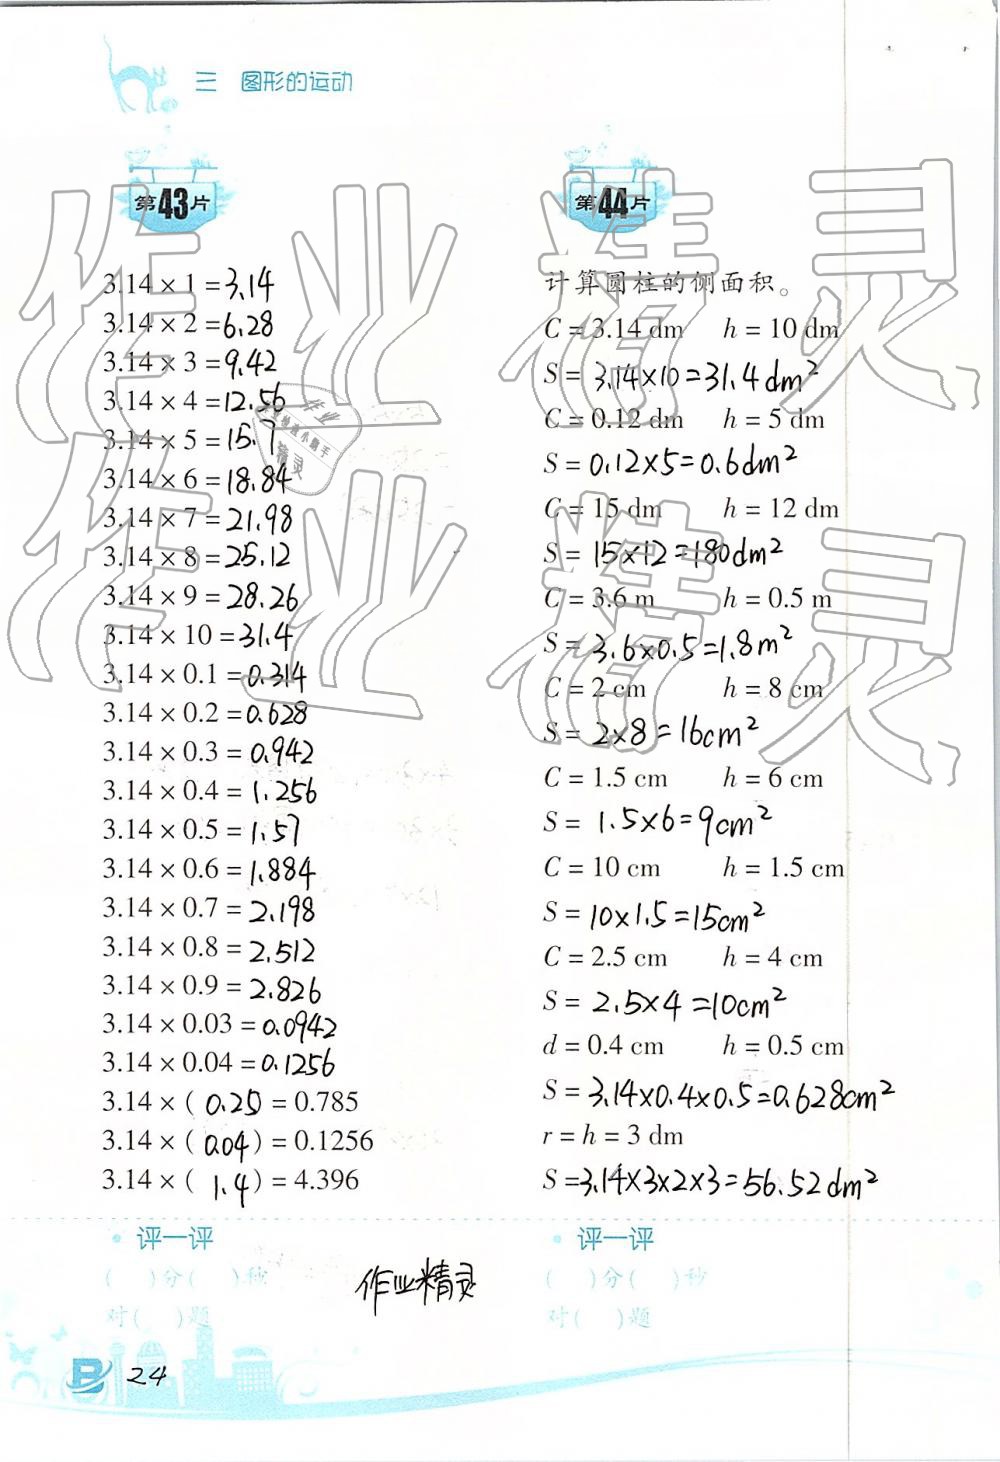 三 图形的运动
第43片
3.14 × 1 = 3.14
3.14 × 2 = 6.28
3.14 × 3 = 9.42
3.14 × 4 = 12.56
3.14 × 5 = 15.7
3.14 × 6 = 18.84
3.14 × 7 = 21.98
3.14 × 8 = 25.12
3.14 × 9 = 28.26
3.14 × 10 = 31.4
3.14 × 0.1 = 0.314
3.14 × 0.2 = 0.628
3.14 × 0.3 = 0.942
3.14 × 0.4 = 1.256
3.14 × 0.5 = 1.57
3.14 × 0.6 = 1.884
3.14 × 0.7 = 2.198
3.14 × 0.8 = 2.512
3.14 × 0.9 = 2.826
3.14 × 0.03 = 0.0942
3.14 × 0.04 = 0.1256
3.14 × ( 0.25 ) = 0.785
3.14 × ( 0.04 ) = 0.1256
3.14 × ( 1.4 ) = 4.396
评一评
( )分( )秒
对( )题
第44片
计算圆柱的侧面积。
C = 3.14 dm h = 10 dm
S = 3.14×10=31.4dm²
C = 0.12 dm h = 5 dm
S = 0.12×5=0.6dm²
C = 15 dm h = 12 dm
S = 15×12=180dm²
C = 3.6 m h = 0.5 m
S = 3.6×0.5=1.8m²
C = 2 cm h = 8 cm
S = 2×8=16cm²
C = 1.5 cm h = 6 cm
S = 1.5×6=9cm²
C = 10 cm h = 1.5 cm
S = 10×1.5=15cm²
C = 2.5 cm h = 4 cm
S = 2.5×4=10cm²
d = 0.4 cm h = 0.5 cm
S = 3.14×0.4×0.5=0.628cm²
r = h = 3 dm
S = 3.14×3×2×3=56.52dm²
评一评
( )分( )秒
对( )题
作业精灵
B 24
作业精灵
作业精灵
作业
精灵